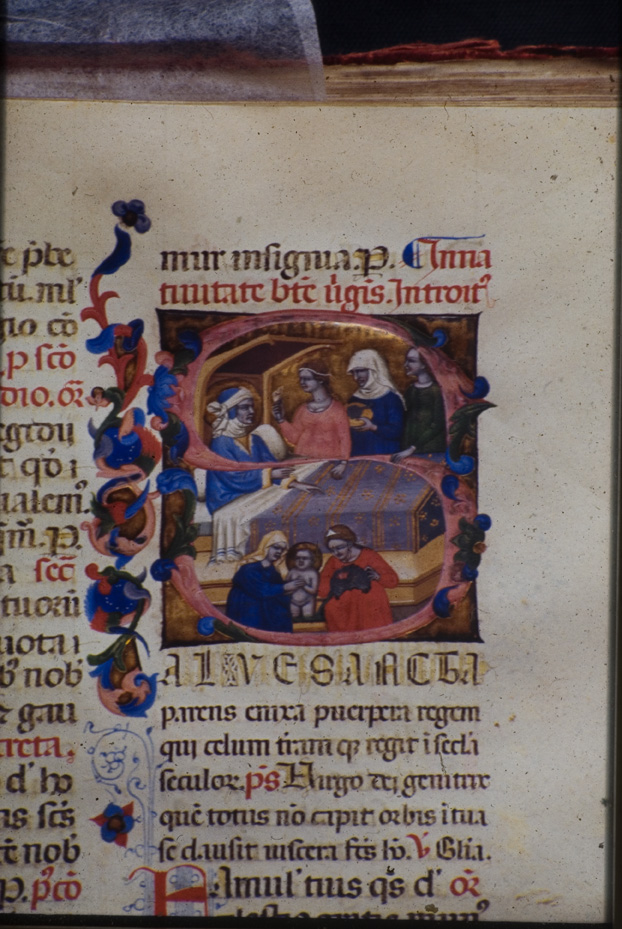 p̄be
tū. mr̄
gio cō
p sc̄o
dio. or̄
egr̄dū
qd̄ i
ualem̄.
P.
a sec̄
tuoꝝ
uota i
nob̄
⁊ gau
creta.
d' hͦ
as sc̄s
ēt nob̄
P. p̄cō
mur insignia. P. Inna
tiuitate bt̄e ūgis. Introit᷒
S
ALUE SANCTA
parens enixa puerpera regem
qui celum tr̄am q; regit ī secl̄a
seculoꝝ. p̄s Uirgo dei genitrix
quē totus nō capit orbis ī tua
se clausit uiscera fc̄s hō. V̄ Gl̄ia.
Famul' tuis qs̄ d' or̄